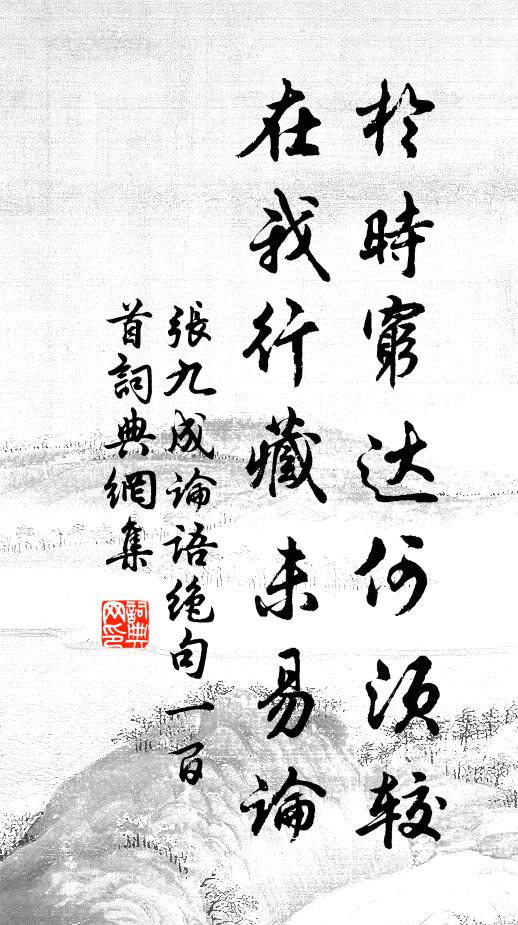 於時窮达何須較
在我行藏未易論
張九成論语绝句一百
首詞典網集
詞典网印